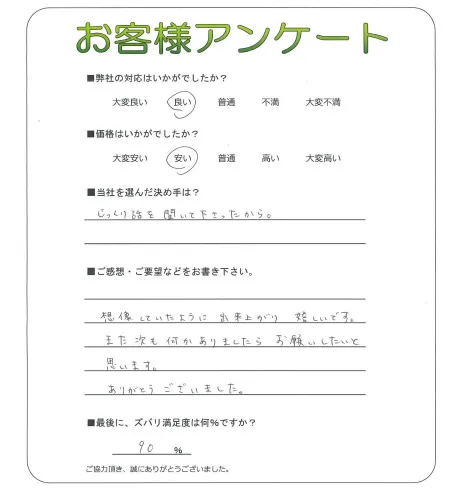 お客様アンケート
■弊社の対応はいかがでしたか？
大変良い 良い 普通 不満 大変不満
■価格はいかがでしたか？
大変安い 安い 普通 高い 大変高い
■当社を選んだ決め手は？
じっくり話を聞いて下さったから。
■ご感想・ご要望などをお書き下さい。
想像していたように 出来上がり 嬉しいです。
また次も何かありましたら お願いしたいと
思います。
ありがとうございました。
■最後に、ズバリ満足度は何％ですか？
90 ％
ご協力頂き、誠にありがとうございました。